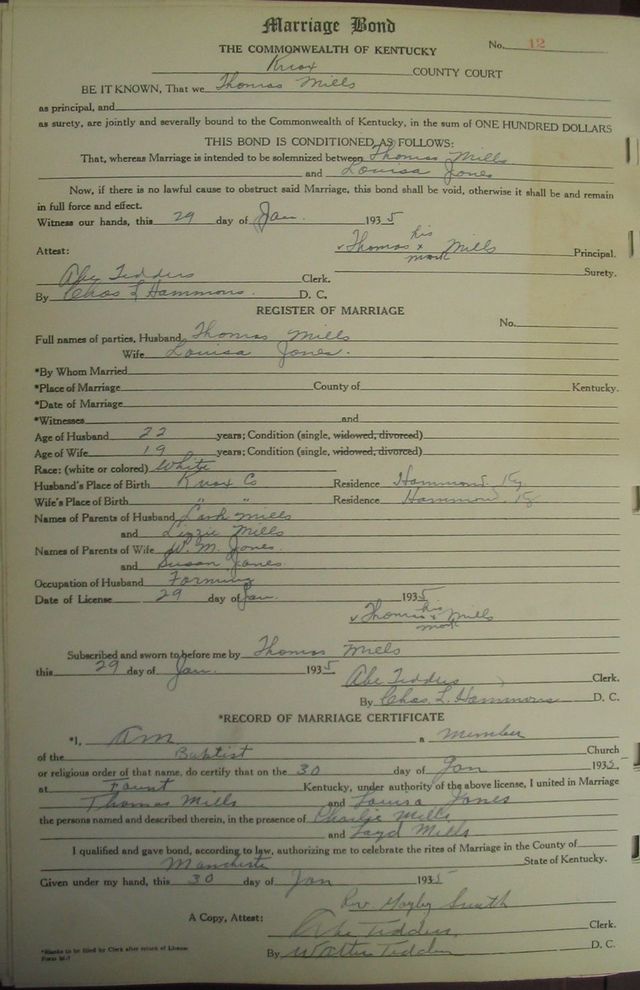 Marriage Bond
THE COMMONWEALTH OF KENTUCKY No. 12
Knox COUNTY COURT
BE IT KNOWN, That we Thomas Mills
as principal, and
as surety, are jointly and severally bound to the Commonwealth of Kentucky, in the sum of ONE HUNDRED DOLLARS
THIS BOND IS CONDITIONED AS FOLLOWS:
That, whereas Marriage is intended to be solemnized between Thomas Mills
and Louisa Jones
Now, if there is no lawful cause to obstruct said Marriage, this bond shall be void, otherwise it shall be and remain
in full force and effect.
Witness our hands, this 29 day of Jan. 1935
his
Attest: Thomas x Mills Principal.
mark
Surety.
Abe Tedders Clerk.
By Chas L Hammons. D. C.
REGISTER OF MARRIAGE
No.
Full names of parties, Husband Thomas Mills
Wife Louisa Jones.
*By Whom Married
*Place of Marriage County of Kentucky.
*Date of Marriage
*Witnesses and
Age of Husband 22 years; Condition (single, widowed, divorced)
Age of Wife 19 years; Condition (single, widowed, divorced)
Race: (white or colored) White
Husband's Place of Birth Knox Co Residence Hammond. Ky
Wife's Place of Birth " " Residence Hammond. Ky.
Names of Parents of Husband Mills
and Lizzie Mills
Names of Parents of Wife W. M. Jones.
and Susan Jones.
Occupation of Husband Farming
Date of License 29 day of Jan. 1935
his
Thomas x Mills
mark
Subscribed and sworn to before me by Thomas Mills
this 29 day of Jan. 1935 Abe Tedders Clerk.
By Chas. L. Hammons D. C.
*RECORD OF MARRIAGE CERTIFICATE
*I, Am a member
of the Baptist Church
or religious order of that name, do certify that on the 30 day of Jan 1935
at Fount Kentucky, under authority of the above license, I united in Marriage
Thomas Mills and Louisa Jones
the persons named and described therein, in the presence of Charlie Mills
and Mills
I qualified and gave bond, according to law, authorizing me to celebrate the rites of Marriage in the County of
Manchester State of Kentucky.
Given under my hand, this 30 day of Jan 1935
Rev Smith
A Copy, Attest: Abe Tedders, Clerk.
By Walter Tedders D. C.
*Blanks to be filled by Clerk after return of License